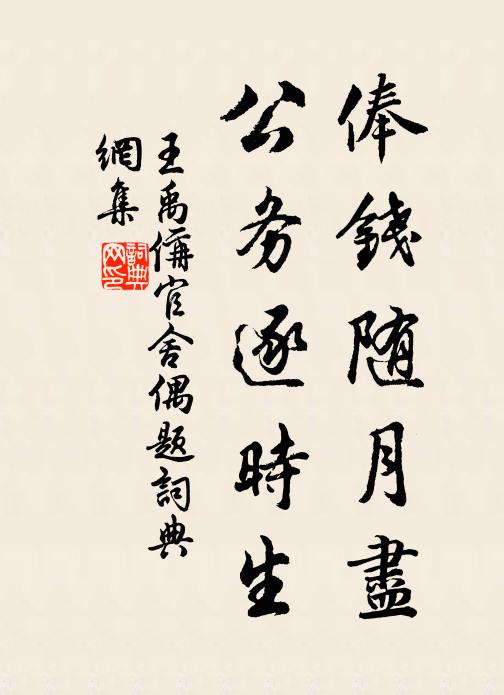 俸錢随月盡
公务逐時生
王禹偁官舍偶题詞典
網集
詞典
网印